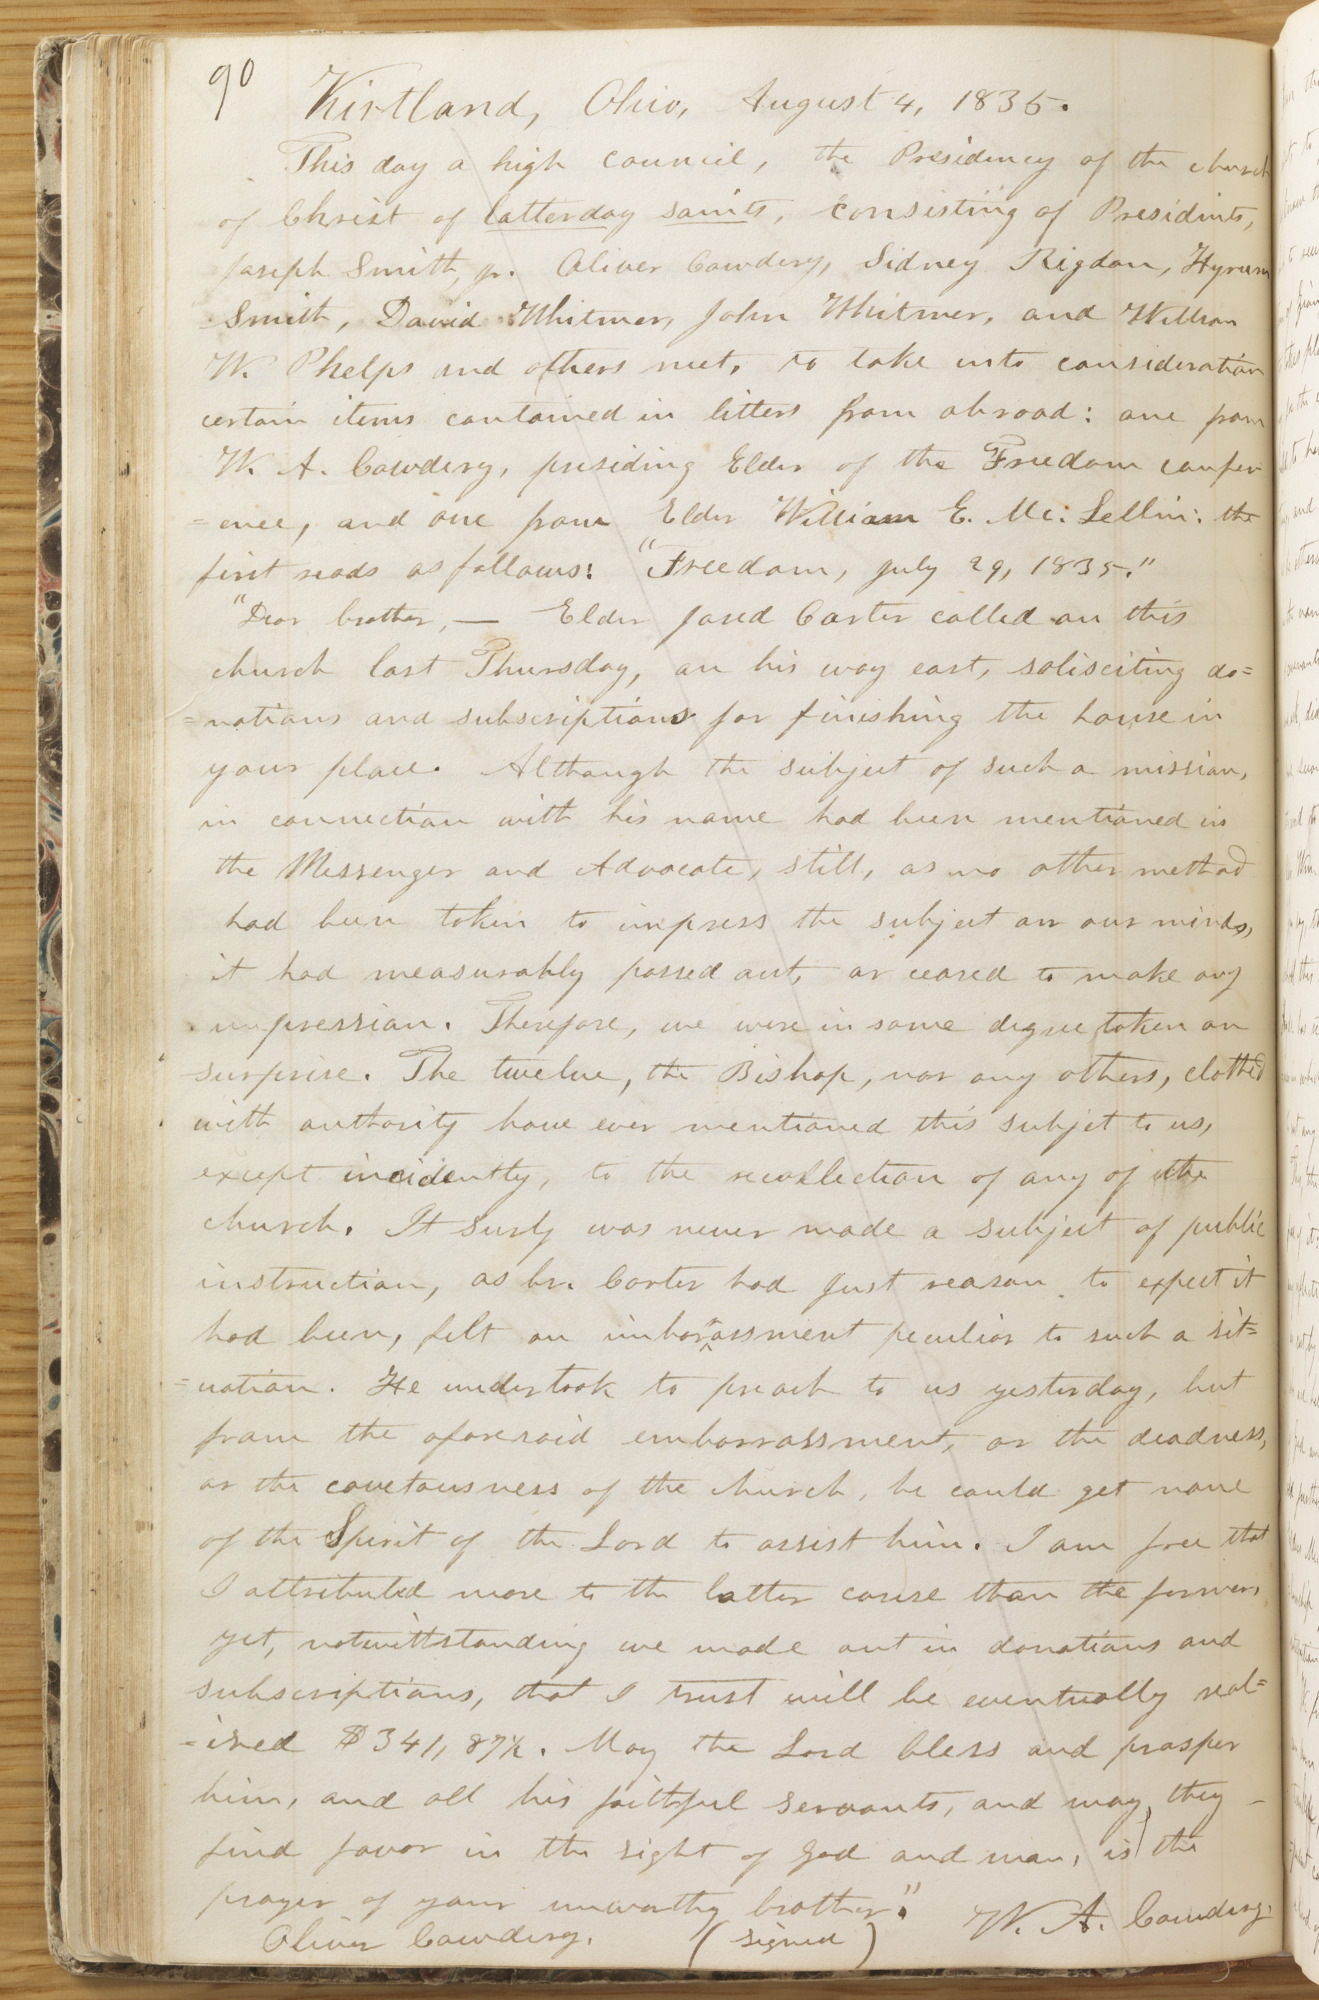 90
Kirtland, Ohio, August 4, 1835.
This day a high council, the Presidency of the church
of Christ of latterday saints, consisting of Presidints,
Joseph Smith, jr. Oliver Cowdery, Sidney Rigdon, Hyrum
Smith, David Whitmer, John Whitmer, and William
W. Phelps and others met, to take into consideration
certain items contained in letters from abroad: one from
W. A. Cowdery, presiding Elder of the Freedom confer-
=ence, and one from Elder William E. Mc. Lellin: the
first reads as follows: "Freedom, July 29, 1835."
"Dear brother, — Elder Jared Carter called on this
church last Thursday, on his way east, solisciting do=
=nations and subscriptions for finishing the house in
your place. Although the subject of such a mission,
in connection with his name had been mentioned in
the Messenger and Advocate, still, as no other method
had been taken to impress the subject on our minds,
it had measurably passed out, or ceased to make any
impression. Therefore, we were in some degree taken on
surprise. The twelve, the Bishop, nor any others, clothed
with authority have ever mentioned this subjet to us,
except incidently, to the recollection of any of the
church. It surly was never made a subject of public
instruction, as br. Carter had just reason to expect it
had been, felt an imbarrassment peculiar to such a sit=
=uation. He undertook to preach to us yesterday, but
from the aforesaid embarrassment, or the deadness,
or the covetousness of the church, he could get none
of the Spirit of the Lord to assist him. I am free that
I attributed more to the latter cause than the former,
yet, notwithstanding we made out in donations and
subscriptions, that I trust will be eventually real=
=ised $341,87½. May the Lord bless and prosper
him, and all his faithful servants, and may they
find favor in the sight of God and man, is the
prayer of your unworthy brother."
W. A. Cowdery.
Oliver Cowdery. (signed)